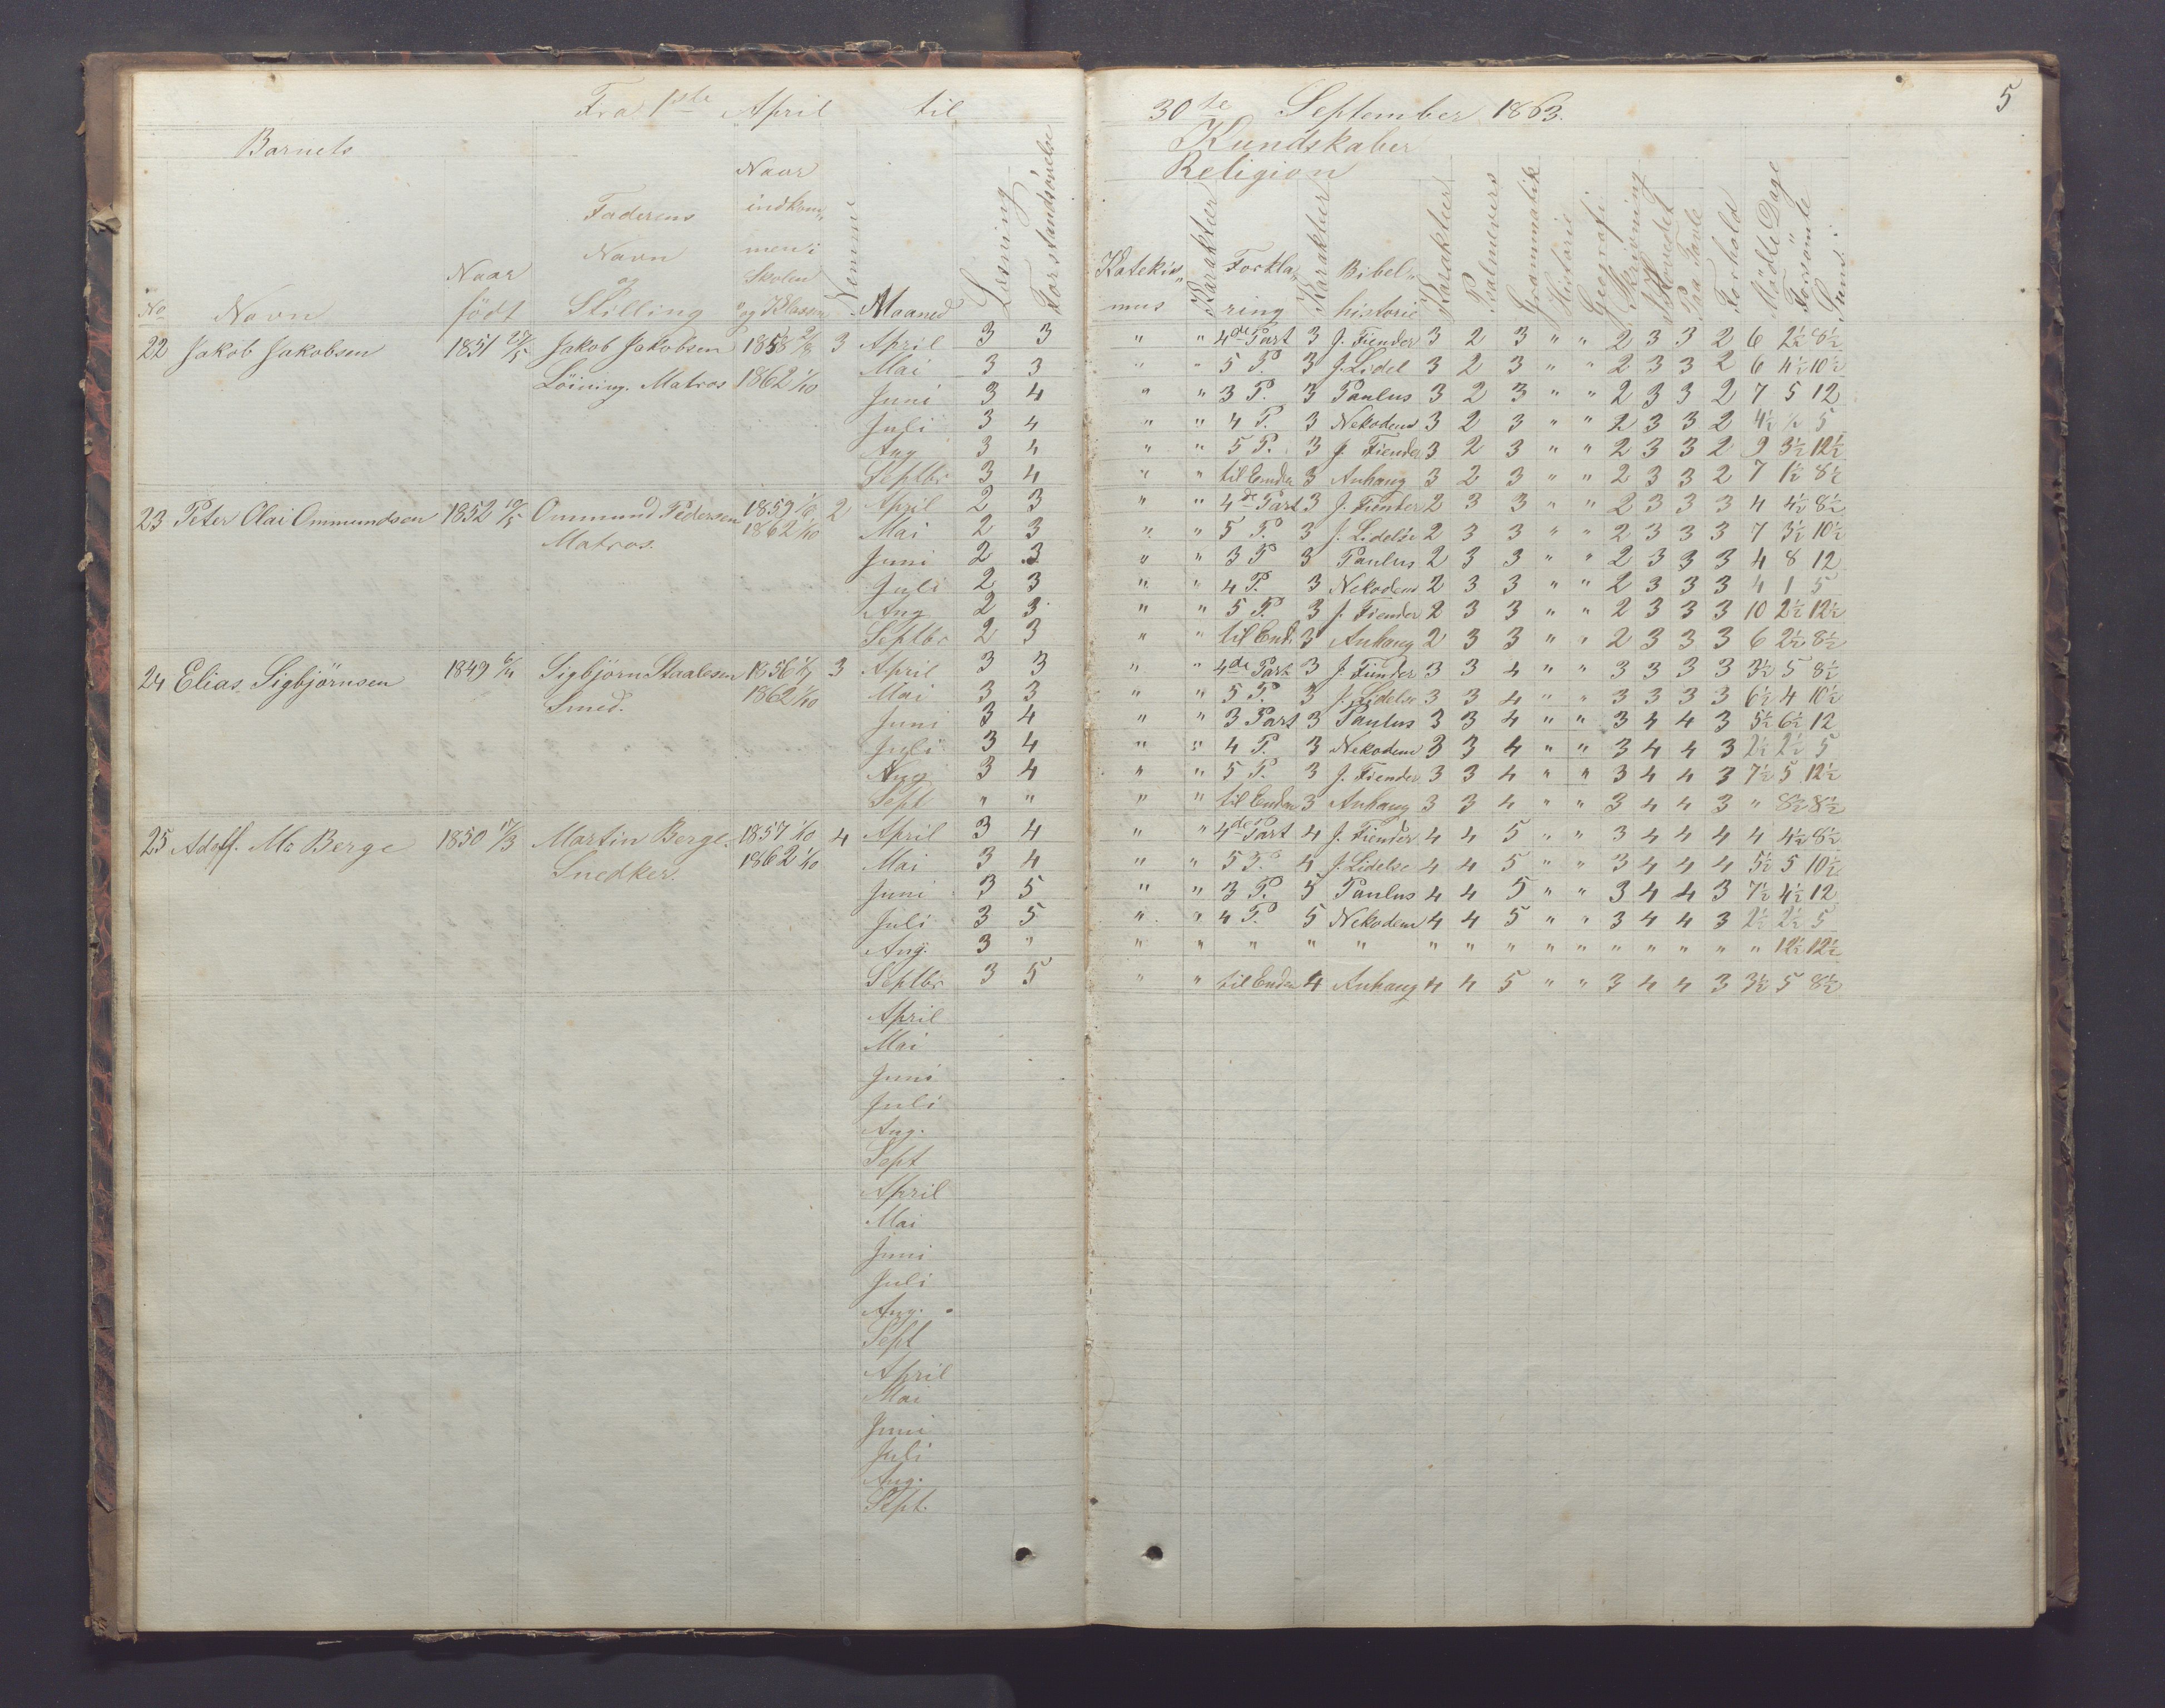 Fra 1ste April til 30te September 1863. 5
Barnets Kundskaber
Religion
No Navn Naar født Faderens Navn og Stilling Naar indkommen i Skolen og Klassen Nemme Maaned Læsning Forstandsøvelse Katekis„mus Karakteer Forkla„ring Karakteer Bibel„historie Karakteer Psalmevers Grammatik Historie Geografi Skrivning Paa Tavle Forhold Mødte Dage Forsømte " Sum:
22 Jakob Jakobsen 1851 Jakob Jakobsen 1858 3 April 3 3 " " 4de Part 3 J. Fiender 3 2 3 " " 2 3 3 2 6 2½ 8½
Löining. Matros 1862 1/10 Mai 3 3 " " 5 P. 3 J. Lidel 3 2 3 " " 2 3 3 2 6 4½ 10½
Juni 3 4 " " 3 P. 3 Paulus 3 2 3 " " 2 3 3 2 7 5 12
Juli 3 4 " " 4 P. 3 Nekodem 3 2 3 " " 2 3 3 2 4½ ½ 5
Aug 3 4 " " 5 P. 3 J. Fiender 3 2 3 " " 2 3 3 2 9 3½ 12½
Septbr 3 4 " " til Enden 3 Anhang 3 2 3 " " 2 3 3 2 7 1½ 8½
23 Peter Olai Ommundsen 1852 Ommund Pedersen 1859 2 April 2 3 " " 4de Part 3 J. Fiender 2 3 3 " " 2 3 3 3 4 4½ 8½
Matros. 1862 1/10 Mai 2 3 " " 5 P. 3 J. Lidelse 2 3 3 " " 2 3 3 3 7 3½ 10½
Juni 2 3 " " 3 P 3 Paulus 2 3 3 " " 2 3 3 3 4 8 12
Juli 2 3 " " 4 P. 3 Nekodem 2 3 3 " " 2 3 3 3 4 1 5
Aug 2 3 " " 5 P. 3 J. Fiender 2 3 3 " " 2 3 3 3 10 2½ 12½
Septbr 2 3 " " til End. 3 Anhang 2 3 3 " " 2 3 3 3 6 2½ 8½
24 Elias Sigbjörnsen 1849 Sigbjörn Staalesen 1856 3 April 3 3 " " 4de Part 3 J. Fiender 3 3 4 " " 3 3 3 3 3½ 5 8½
Smed. 1862 1/10 Mai 3 3 " " 5 P. 3 J. Lidelse 3 3 4 " " 3 3 3 3 6½ 4 10½
Juni 3 4 " " 3 Part 3 Paulus 3 3 4 " " 3 4 4 3 5½ 6½ 12
Juli 3 4 " " 4 P. 3 Nekodem 3 3 4 " " 3 4 4 3 2½ 2½ 5
Aug 3 4 " " 5 P. 3 J. Fiender 3 3 4 " " 3 4 4 3 7½ 5 12½
Sept " " " " til Enden 3 Anhang 3 3 4 " " 3 4 4 3 " 8½ 8½
25 Adolf. Ma Berge 1850 17/3 Martin Berge. 1857 1/10 4 April 3 4 " " 4de Part 4 J. Fiender 4 4 5 " " 3 4 4 4 4 4½ 8½
Snedker. 1862 1/10 Mai 3 4 " " 5 P. 4 J. Lidelse 4 4 5 " " 3 4 4 4 5½ 5 10½
Juni 3 5 " " 3 P. 5 Paulus 4 4 5 " " 3 4 4 3 7½ 4½ 12
Juli 3 5 " " 4 P. 5 Nekodem 4 4 5 " " 3 4 4 3 2½ 2½ 5
Aug. 3 " " " " " " " " " " " " " " " " 12½ 12½
Septbr 3 5 " " til Enden 4 Anhang 4 4 5 " " 3 4 4 3 3½ 5 8½
April
Mai
Juni
Juli
Aug.
Sept
April
Mai
Juni
Juli
Aug.
Sept
April
Mai
Juni
Juli
Aug.
Sept.